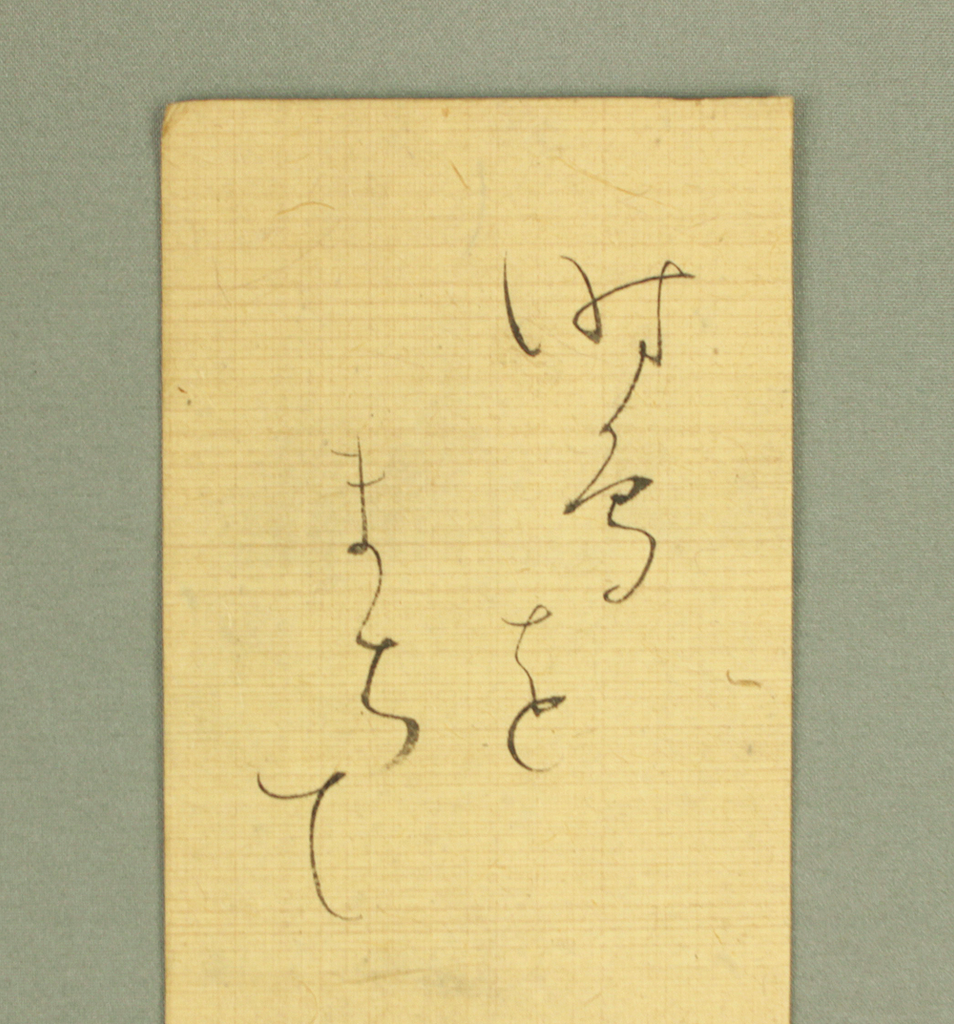 時鳥を
まちて